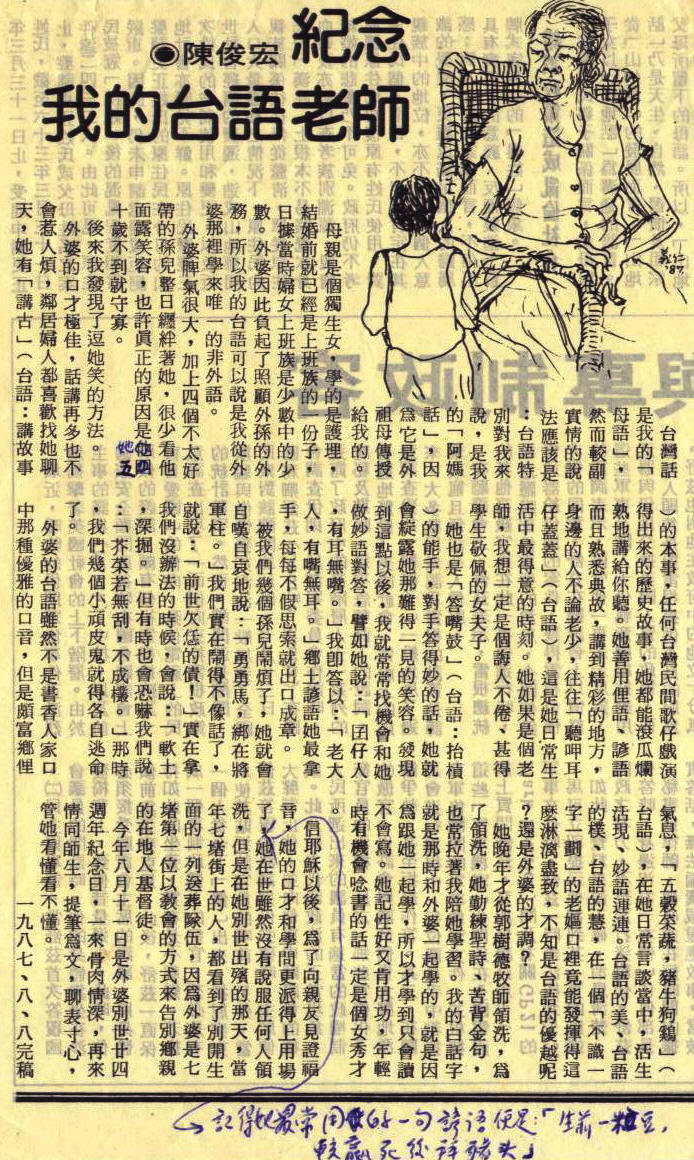 紀念
我的台語老師
◉陳俊宏
義仁
'87.
台灣話
是我的「
母語」，
然而較副
實情的說
法應該是
：台語特
別對我來
說，是我
的「阿媽
話」，因
為它是外
祖母傳授
給我的。
母親是個獨生女，學的是護理，
結婚前就已經是上班族的一份子，
日據當時婦女上班族是少數中的少
數。外婆因此負起了照顧外孫的外
務，所以我的台語可以說是我從外
婆那裡學來唯一的非外語。
外婆脾氣很大，加上四個不太好
帶的孫兒整日纏絆著她，很少看他
面露笑容，也許眞正的原因是他四
她五
十歲不到就守寡。
後來我發現了逗她笑的方法。
外婆的口才極佳，話講再多也不
會惹人煩，鄰居婦人都喜歡找她聊
天，她有「講古」（台語：講故事
）的本事，任何台灣民間歌仔戲演
得出來的歷史故事，她都能滾瓜爛
熟地講給你聽。她善用俚語、諺語
而且熟悉典故，講到精彩的地方，
身邊的人不論老少，往往「聽呷耳
仔蓋蓋」（台語），這是她日常生
活中最得意的時刻。她如果是個老
師，我想一定是個誨人不倦、甚得
學生敬佩的女夫子。
她也是「答嘴鼓」（台語：抬槓
）的能手，對手答得妙的話，她就
會綻露她那難得一見的笑容。發現
到這點以後，我就常常找機會和她
做妙語對答，譬如她說：「囝仔人
，有耳無嘴。」我卽答以：「老大
人，有嘴無耳。」鄉土諺語她最拿
手，每每不假思索就出口成章。
被我們幾個孫兒鬧煩了，她就會
自嘆自哀地說：「勇勇馬，綁在將
軍柱。」我們實在鬧得不像話了，
就說：「前世欠恁的債！」實在拿
我們沒辦法的時候，會說：「軟土
，深掘。」但有時也會恐嚇我們說
：「芥菜若無刮，不成欉。」那時
，我們幾個小頑皮鬼就得各自逃命
了。
外婆的台語雖然不是書香人家口
中那種優雅的口音，但是頗富鄉俚
氣息，「五穀菜蔬，豬牛狗鷄」（
台語），在她日常言談當中，活生
活現、妙語連連。台語的美、台語
的樸、台語的慧，在一個「不識一
字一劃」的老嫗口裡竟能發揮得這
麼淋漓盡致，不知是台語的優越呢
？還是外婆的才調？
她晚年才從郭樹德牧師領洗，爲
了領洗，她勤練聖詩、苦背金句，
也常拉著我陪她學習。我的白話字
就是那時和外婆一起學的，就是因
爲跟她一起學，所以才學到只會讀
不會寫。她記性好又肯用功，年輕
時有機會唸書的話一定是個女秀才
信耶穌以後，爲了向親友見證福
音，她的口才和學問更派得上用場
了。她在世雖然沒有說服任何人領
洗，但是在她別世出殯的那天，當
年七堵街上的人，都看到了別開生
面的一列送葬隊伍，因爲外婆是七
堵第一位以教會的方式來告別鄉親
的在地人基督徒。
今年八月十一日是外婆別世廿四
週年紀念日，一來骨肉情深，再來
情同師生，提筆爲文，聊表寸心，
管她看懂看不懂。
一九八七、八、八完稿
記得她最常用的一句諺語便是：「生前一粒豆，
較贏死後拜豬头」